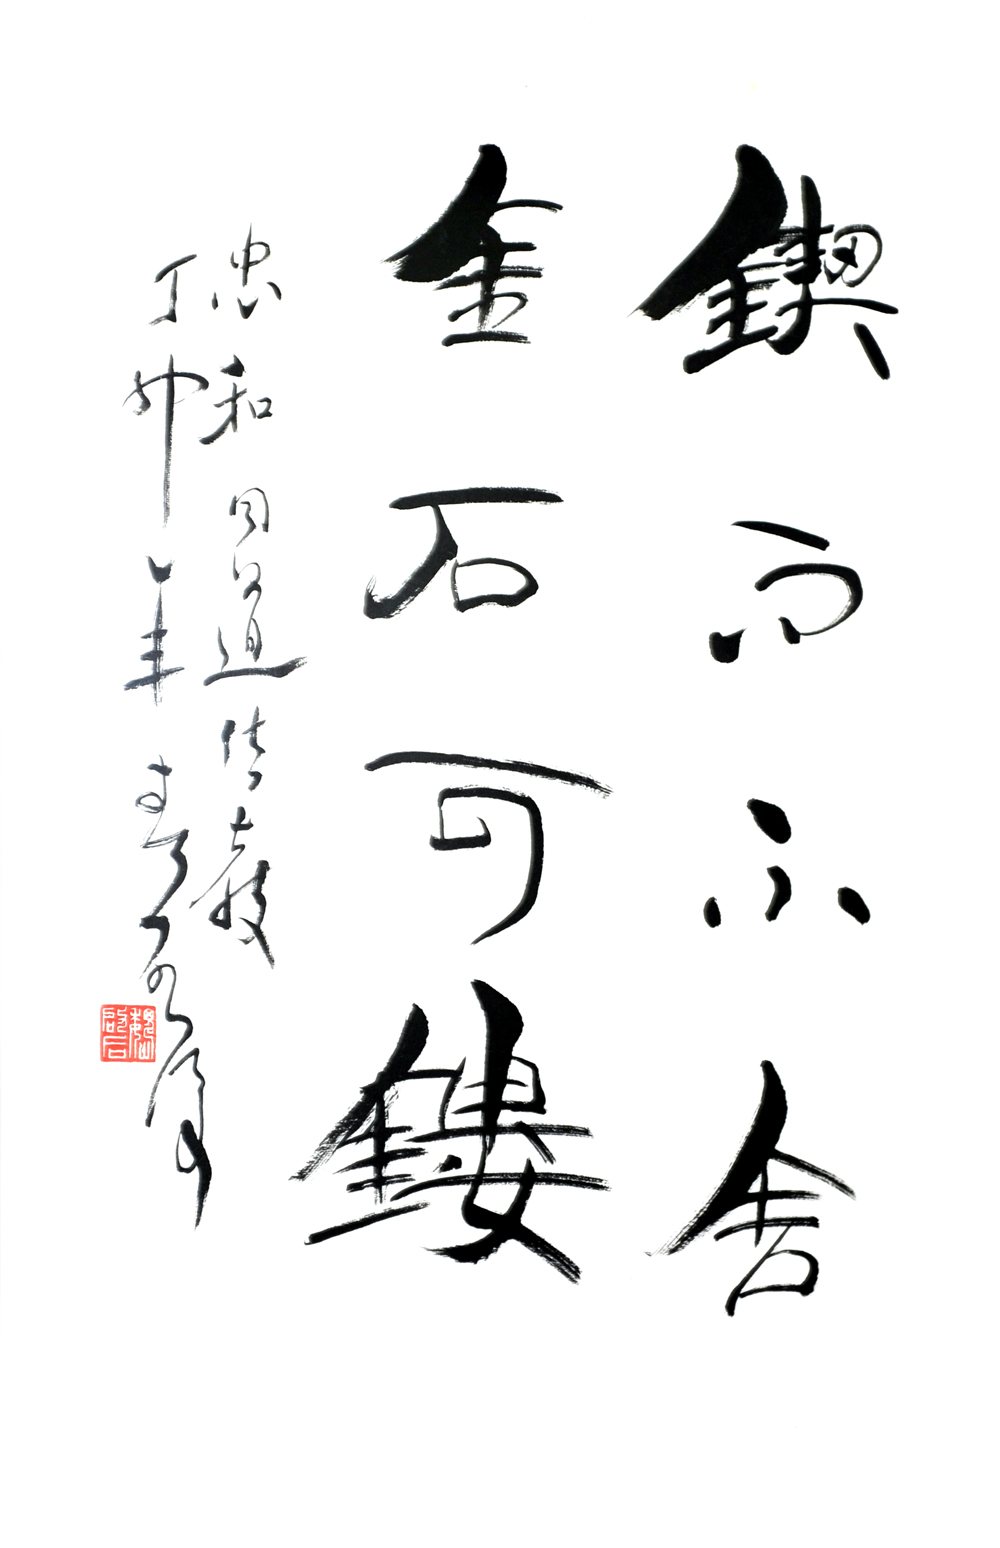 鍥而不舍
金石可鏤
忠和同道法教
丁卯年春